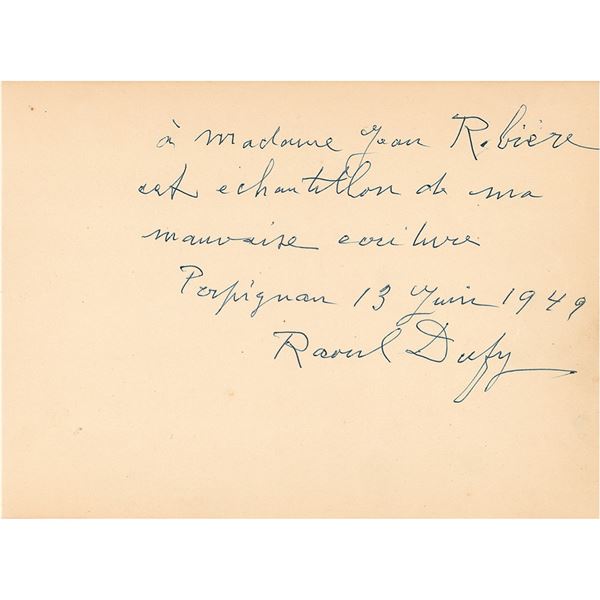 à madame Jean Ribière
cet échantillon de ma
mauvaise écriture
Perpignan 13 Juin 1949
Raoul Dufy